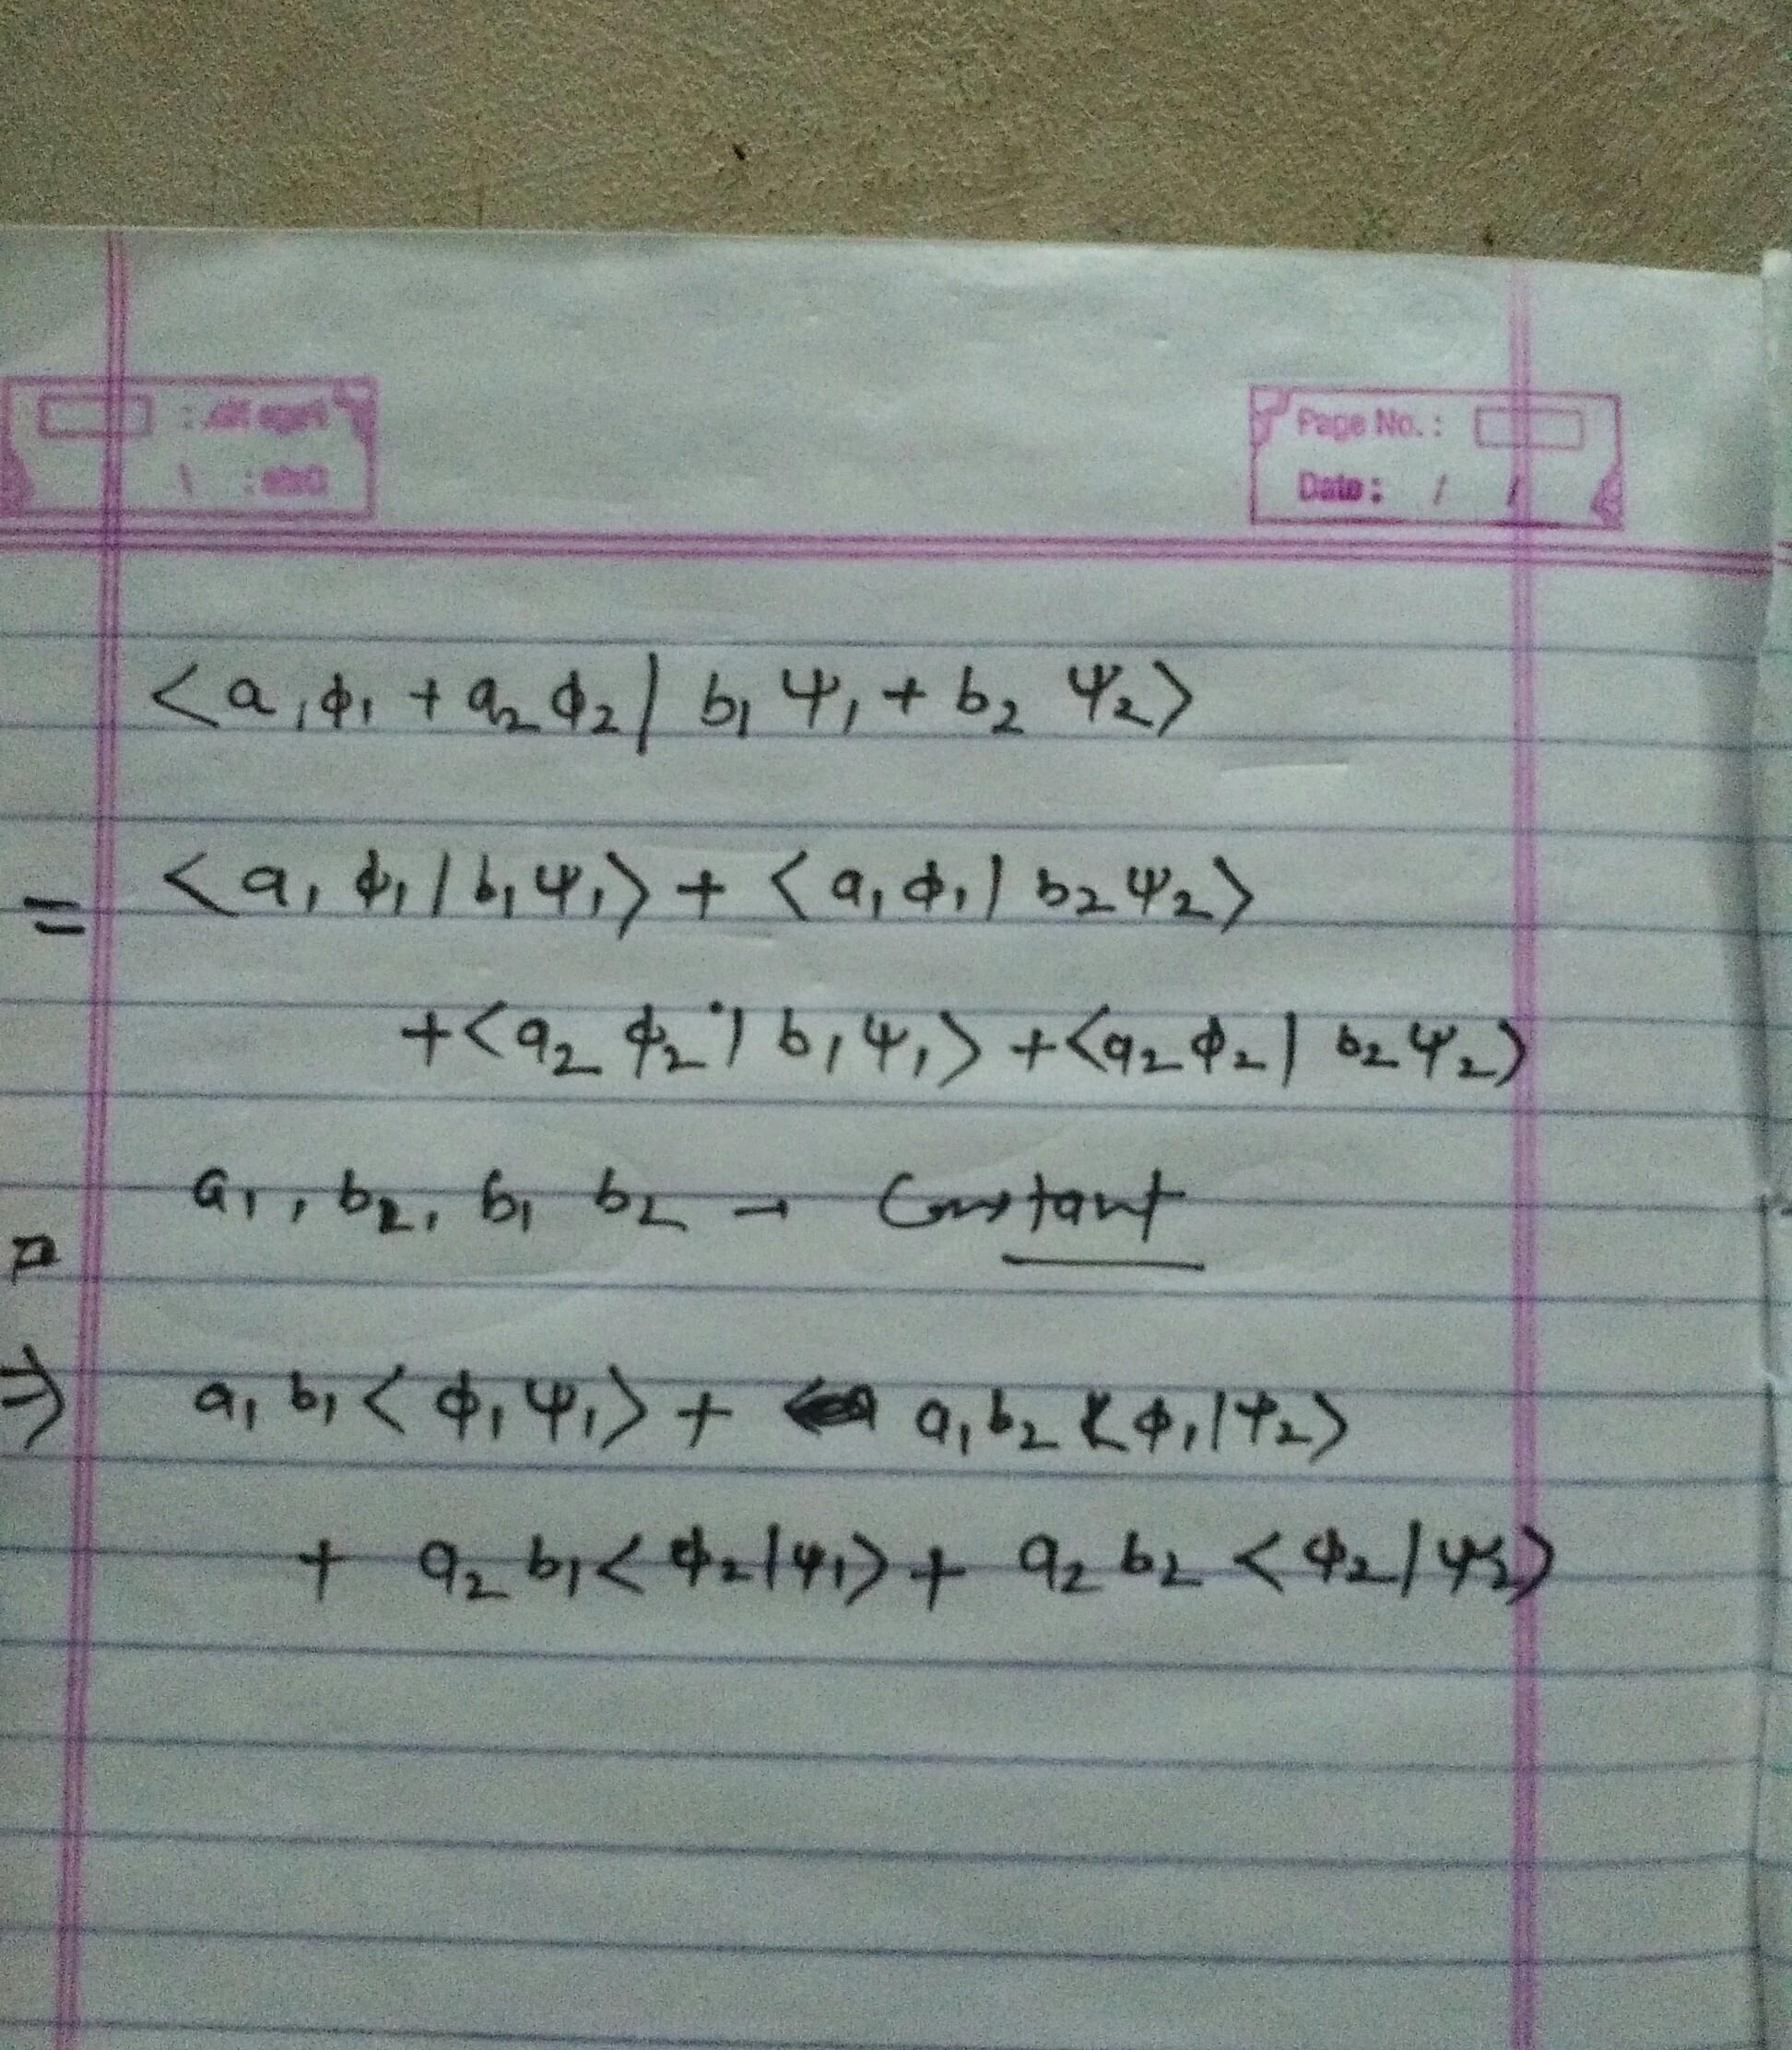 Page No. :
Date : / /
<a₁ϕ₁ + a₂ϕ₂ | b₁ψ₁ + b₂ ψ₂>
= <a₁ ϕ₁ | b₁ψ₁> + <a₁ϕ₁ | b₂ψ₂>
+ <a₂ ϕ₂ | b₁ψ₁> + <a₂ϕ₂ | b₂ψ₂>
a₁, b₂, b₁ b₂ → Constant
⇒ a₁ b₁ <ϕ₁ψ₁> + a₁b₂ <ϕ₁|ψ₂>
+ a₂ b₁ <ϕ₂|ψ₁> + a₂ b₂ <ϕ₂|ψ₂>